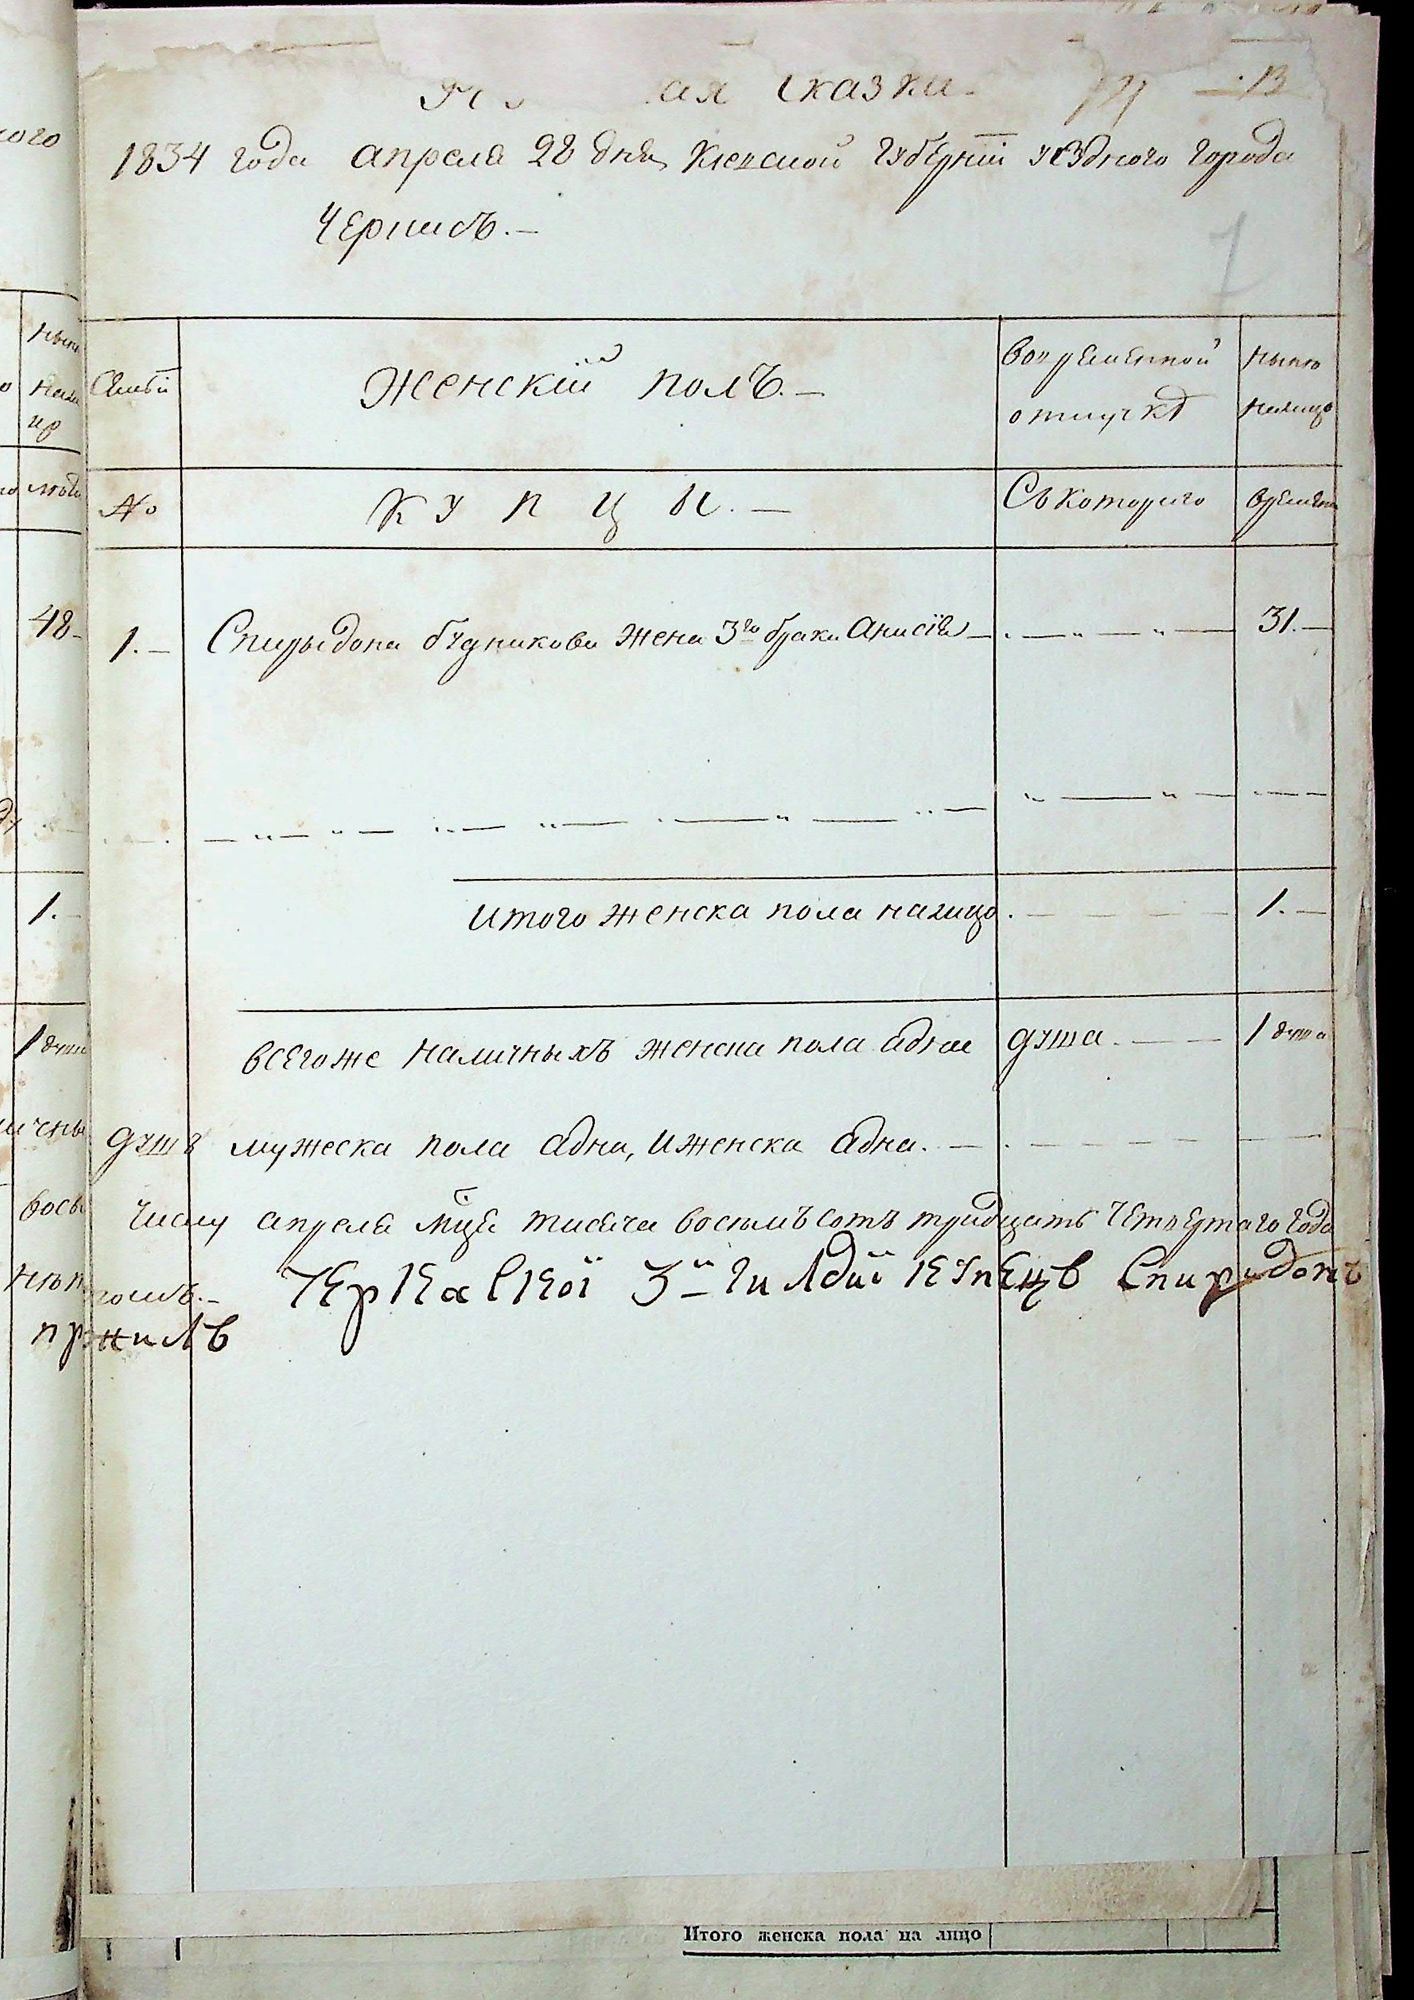 ая сказки.
1834 года апреля 28 дня Киевской губернии уездного города
Черкасъ.—
Семьи Женскій полъ.— Вовременной отлучкѣ Ныне налицо
№ Купцы.— Съ котораго Времени
1.— Спирыдона будникова жена 3го брака Анисія 31.—
Итого женска пола налицо. 1.—
всегоже наличныхъ женска пола адна душа. 1 душа
душъ мужеска пола адна, и женска адна.—
числу апреля мца тисяча восемъ сотъ тридцать четвертаго года
Черкаскоі 3й гилдиі купецъ Спиридонъ
приложилъ
48
1.—
1 душа
Итого женска пола на лицо